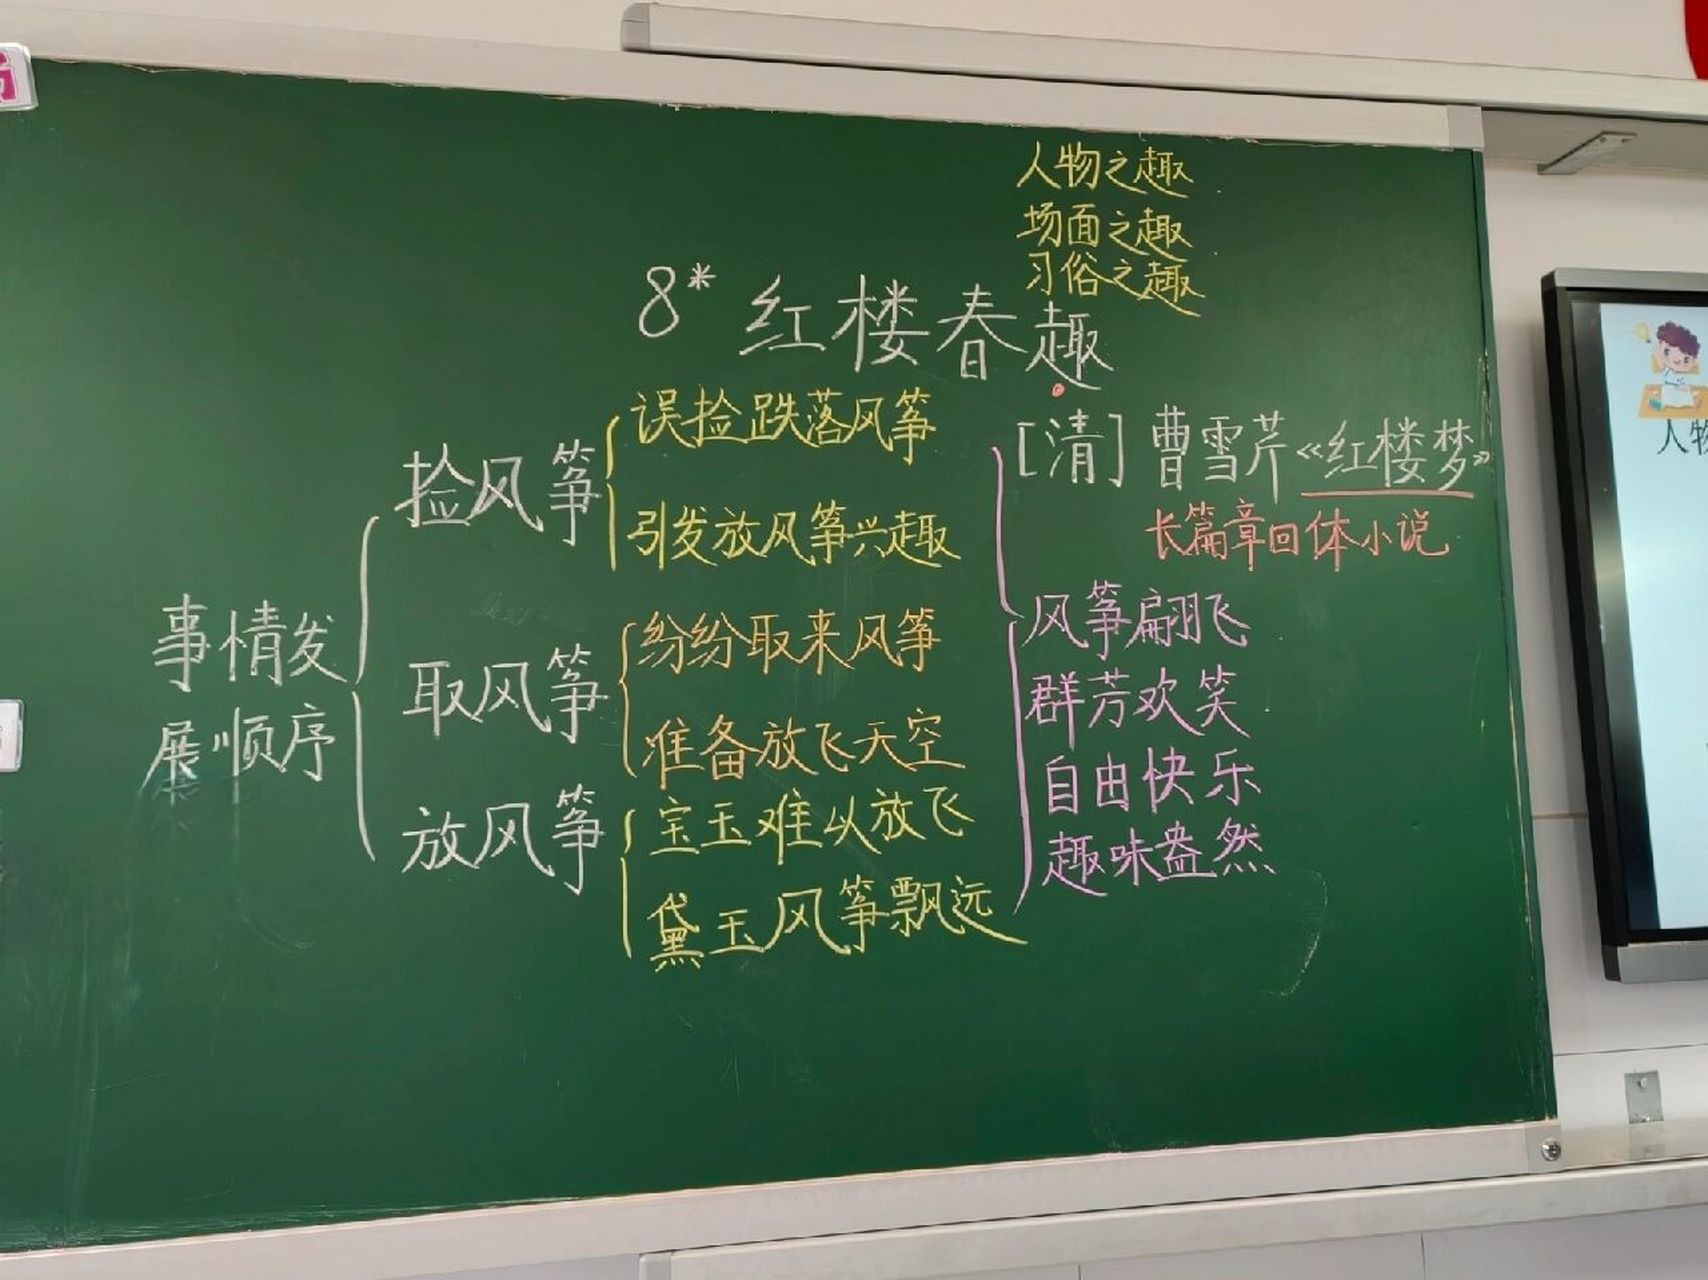 人物之趣
场面之趣
习俗之趣
8* 红楼春趣
[清] 曹雪芹《红楼梦》
长篇章回体小说
事情发
展顺序
捡风筝
误捡跌落风筝
引发放风筝兴趣
取风筝
纷纷取来风筝
准备放飞天空
放风筝
宝玉难以放飞
黛玉风筝飘远
风筝翩飞
群芳欢笑
自由快乐
趣味盎然
人物